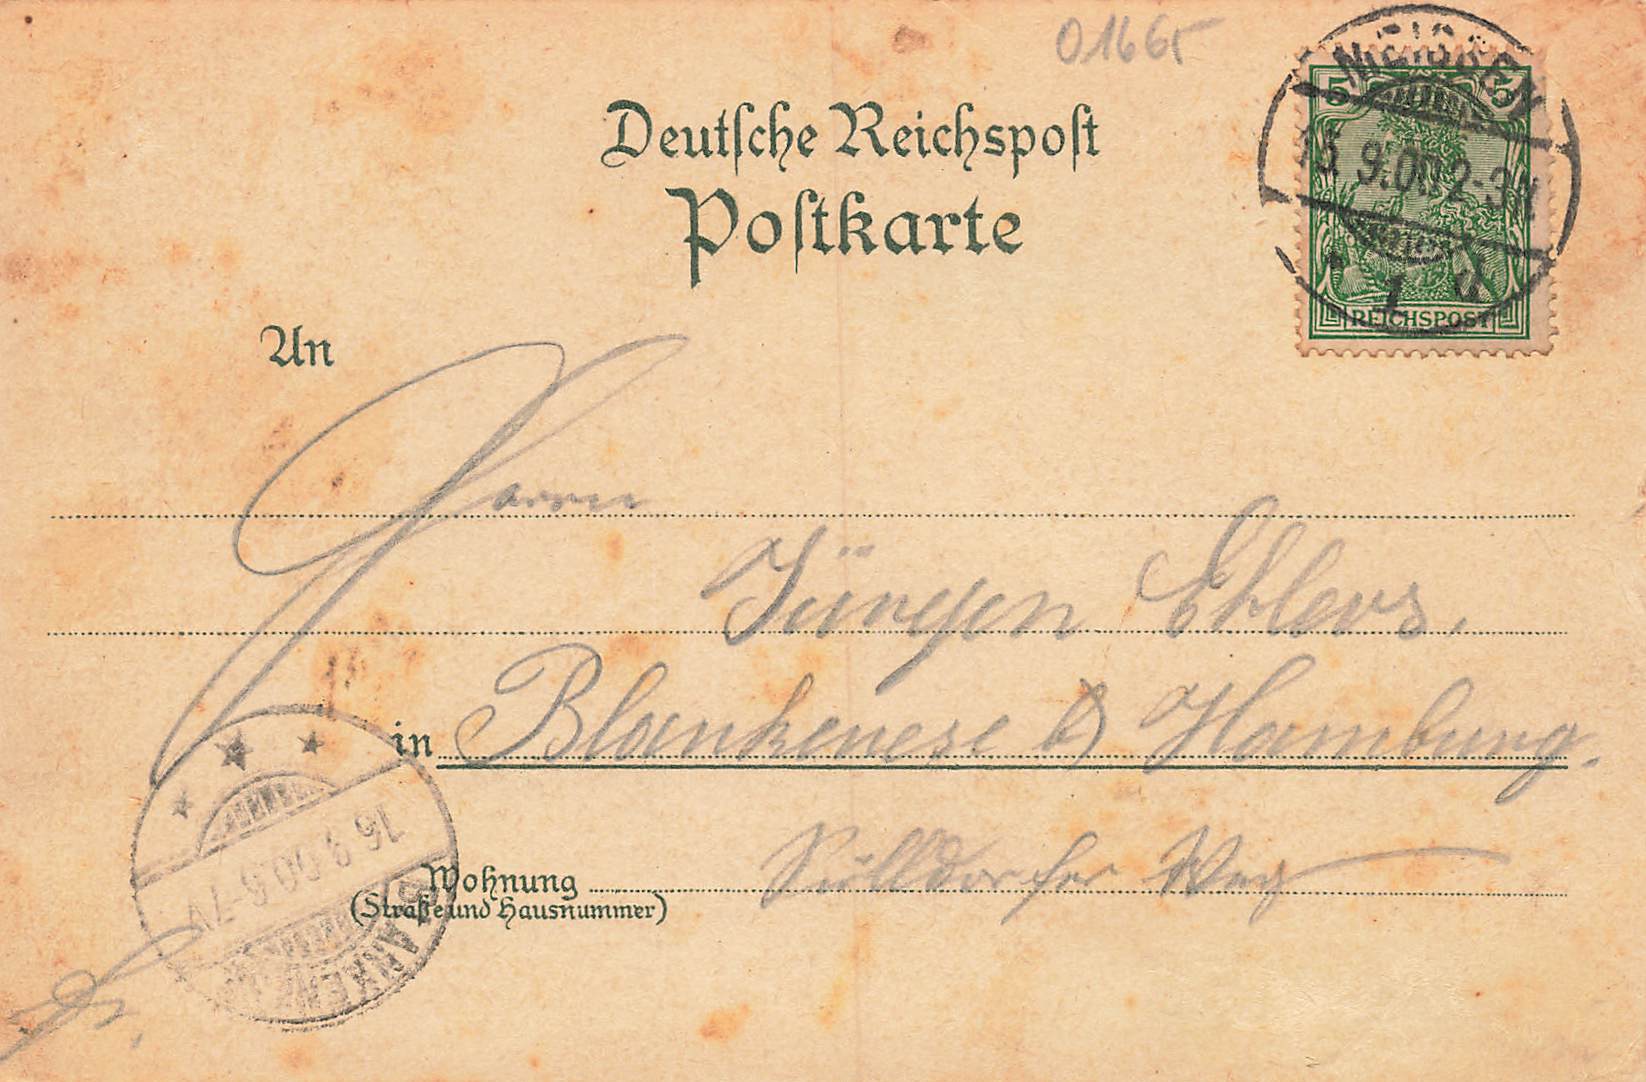 01665
Deutſche Reichspoſt
Poſtkarte
MEISSEN
15 9.00 2-3N
1 d
5 5
REICHSPOST
An
Herrn
Jürgen Ehlers,
in Blankenese b/ Hamburg.
Wohnung Sülldorfer Weg
(Straße und Hausnummer)
16 9 00 6-7V
BLANKENESE